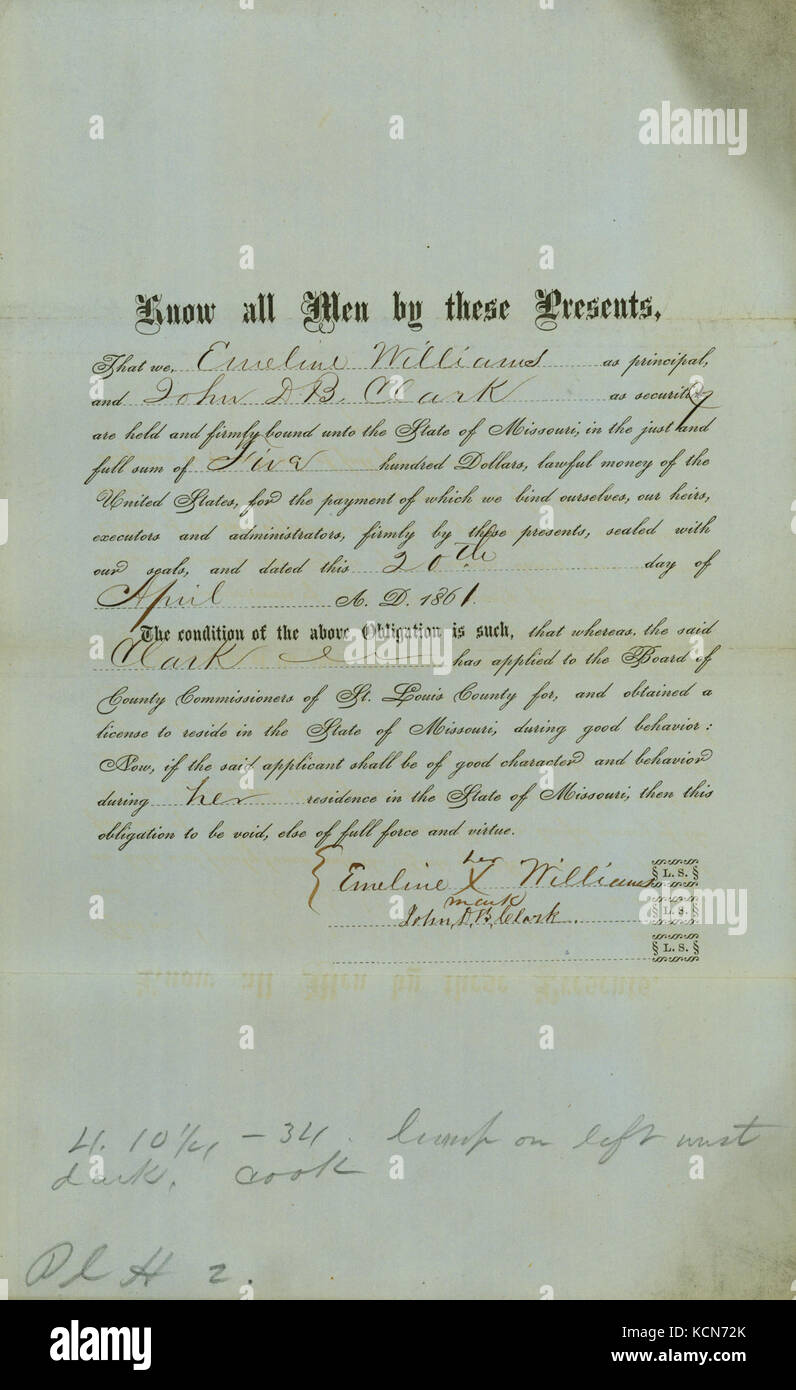 Know all Men by these Presents,
That we, Emeline Williams as principal,
and John D B. Clark as security
are held and firmly bound unto the State of Missouri, in the just and
full sum of Five hundred Dollars, lawful money of the
United States, for the payment of which we bind ourselves, our heirs,
executors and administrators, firmly by these presents, sealed with
our seals, and dated this 20th day of
April A. D. 1861.
The condition of the above Obligation is such, that whereas, the said
Clark has applied to the Board of
County Commissioners of St. Louis County for, and obtained a
license to reside in the State of Missouri, during good behavior:
Now, if the said applicant shall be of good character and behavior
during her residence in the State of Missouri, then this
obligation to be void, else of full force and virtue.
her
Emeline X Williams § L. S. §
mark
John, D, B, Clark. § L. S. §
§ L. S. §
Know all Men by these Presents,
4. 10 1/4 - 34. lump on left wrist
dark. cook
H 2.
a alamy stock photo
alamy
Image ID: KCN72K
www.alamy.com